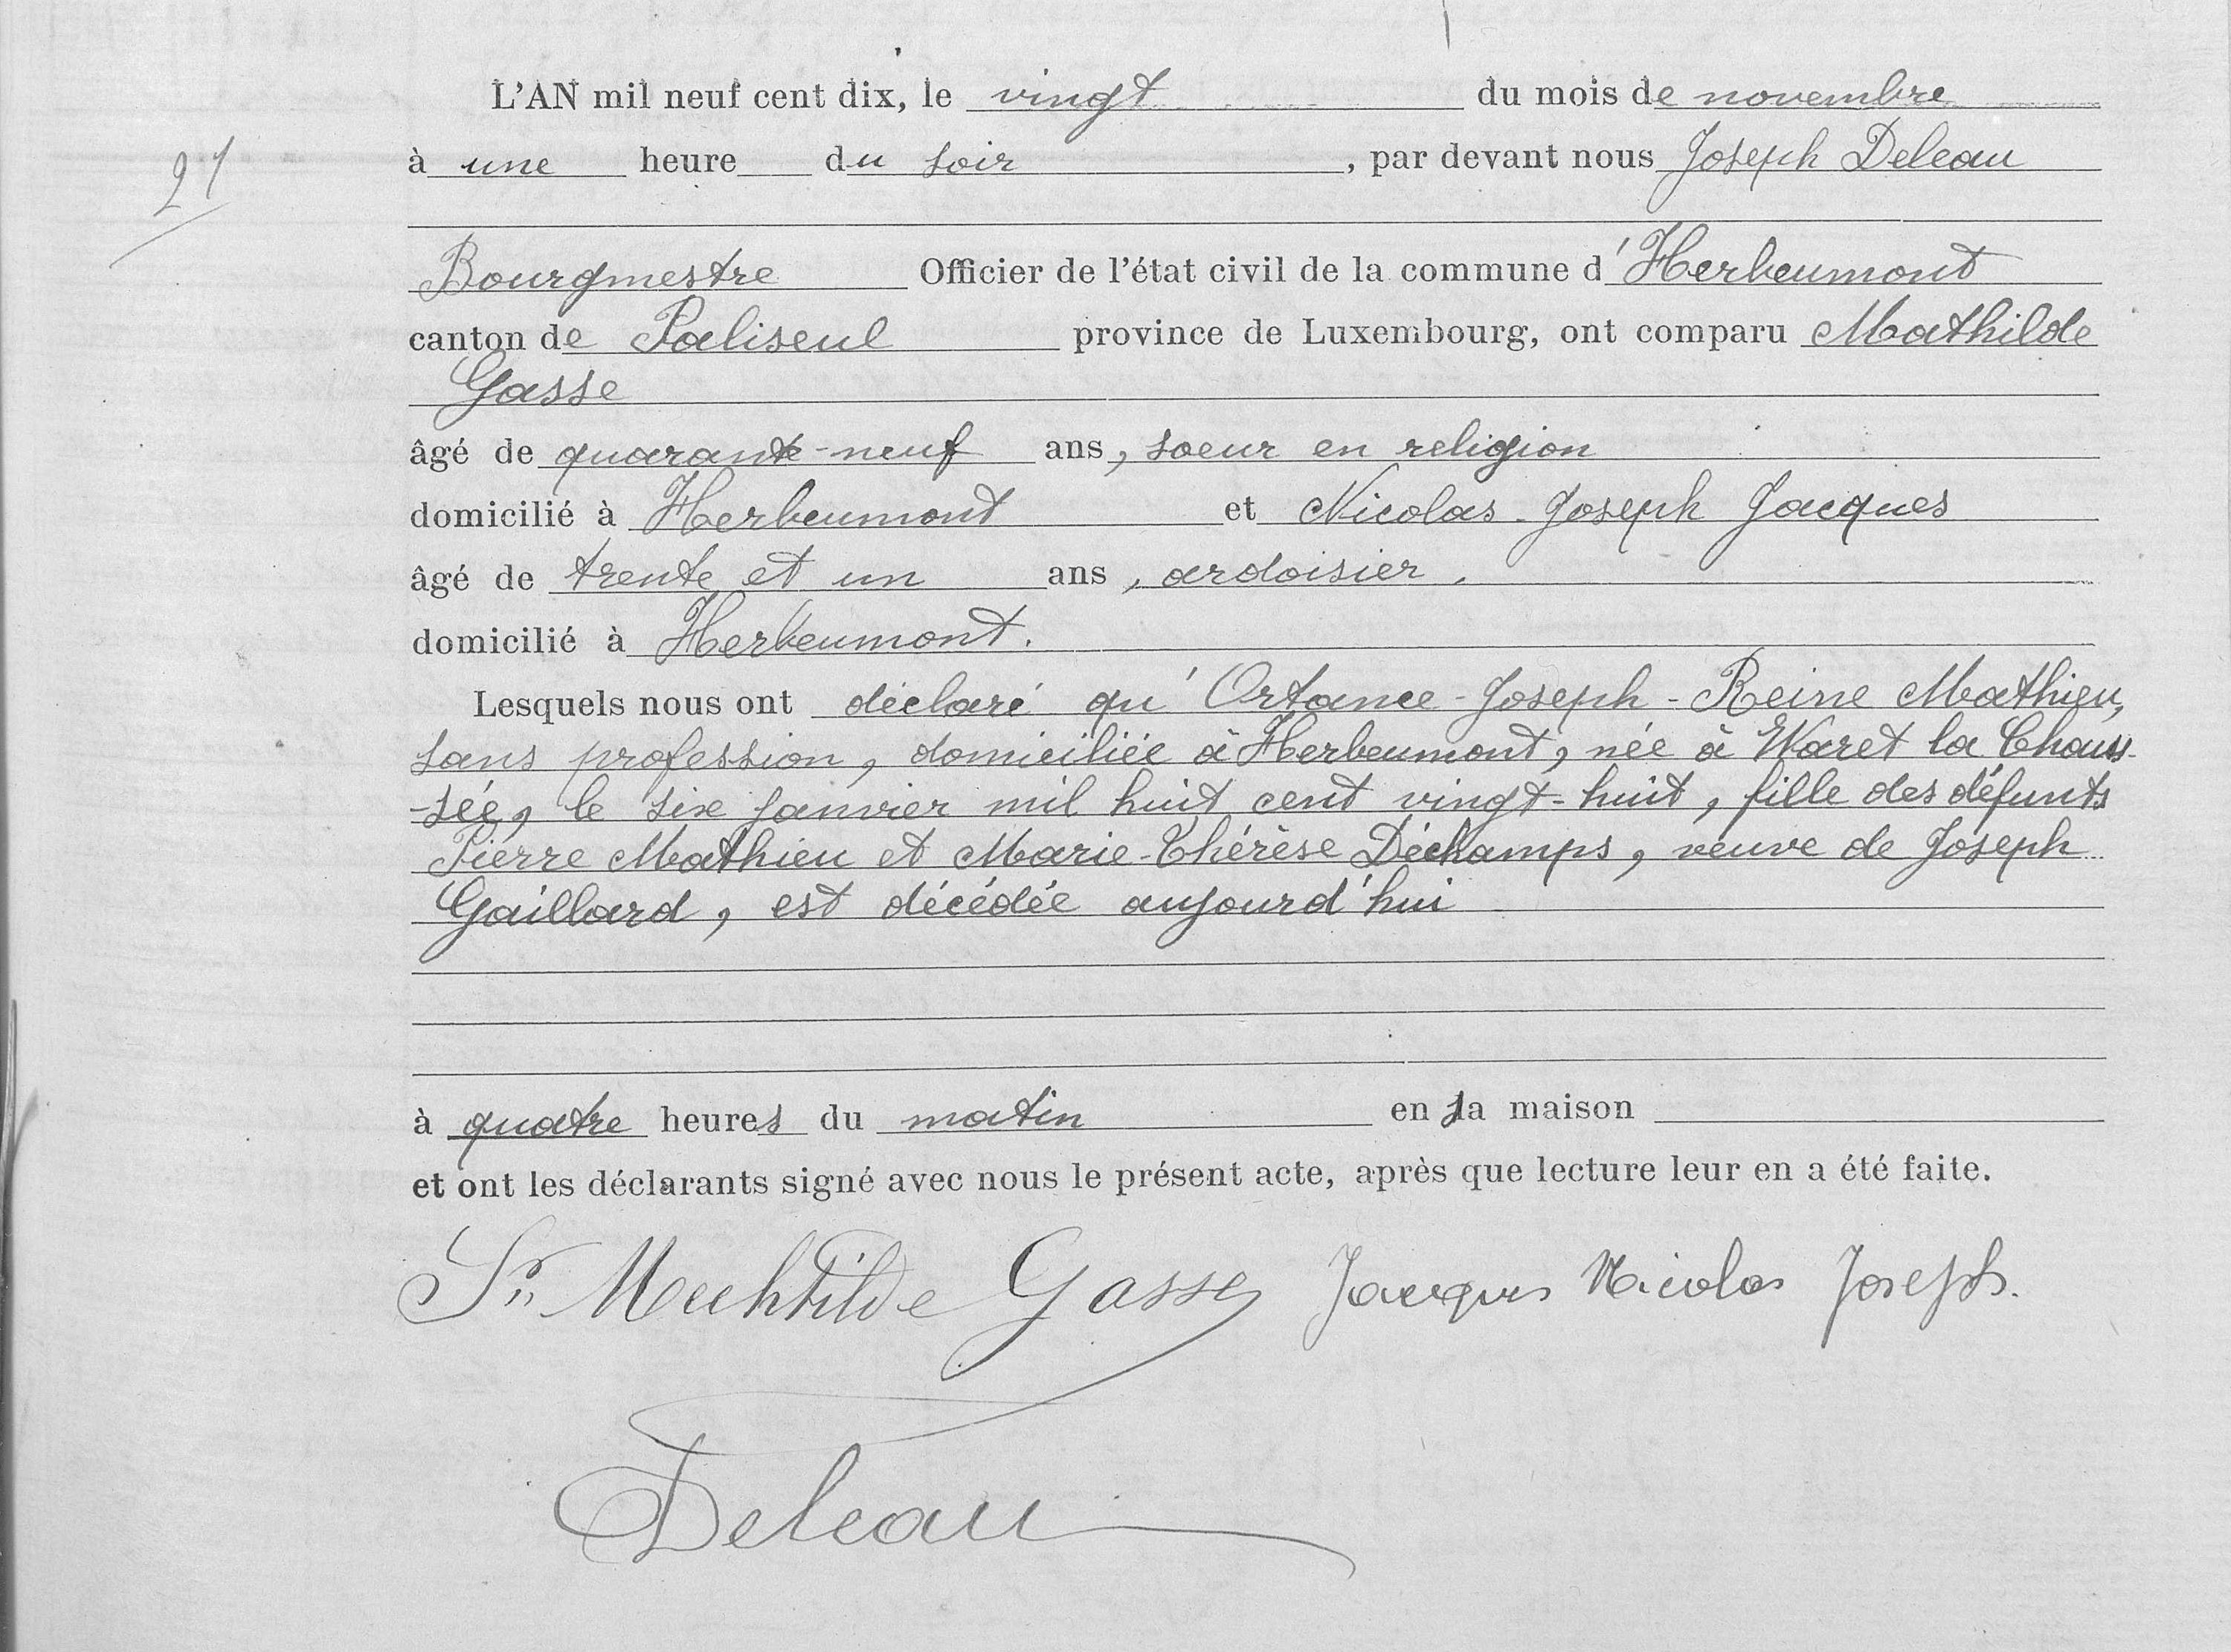 L'AN mil neuf cent dix, le vingt du mois de novembre
21
à une heure du soir, par devant nous Joseph Deleau
Bourgmestre Officier de l'état civil de la commune d'Herbeumont
canton de Paliseul province de Luxembourg, ont comparu Mathilde
Gasse
âgé de quarante-neuf ans, soeur en religion
domicilié à Herbeumont et Nicolas-Joseph Jacques
âgé de trente et un ans, ardoisier,
domicilié à Herbeumont.
Lesquels nous ont déclaré qu'Ortance-Joseph-Reine Mathieu,
sans profession, domiciliée à Herbeumont, née à Waret la Chaus-
-sée, le six janvier mil huit cent vingt-huit, fille des défunts
Pierre Mathieu et Marie-Thérèse Déchamps, veuve de Joseph
Gaillard, est décédée aujourd'hui
à quatre heures du matin en sa maison
et ont les déclarants signé avec nous le présent acte, après que lecture leur en a été faite.
Sr. Mechtilde Gasse Jacques Nicolas Joseph.
Deleau